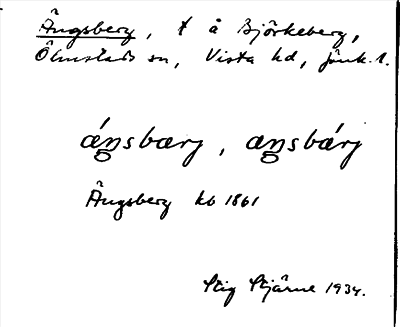 Ängsberg, t å Björkeberg,
Ölmstads sn, Vista hd, Jönk. l.
áŋsbærj, aŋsbárj
Ängsberg kb 1861
Stig Stjärne 1934.